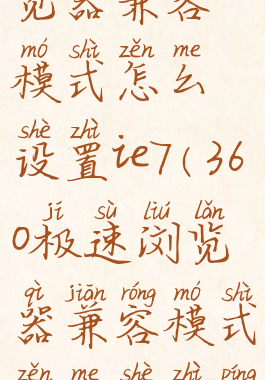 览器兼容
mó shì zěn me
模式怎么
shè zhì
设置ie7(36
jí sù liú lǎn
0极速浏览
qì jiān róng mó shì
器兼容模式
zěn me shè zhì píng